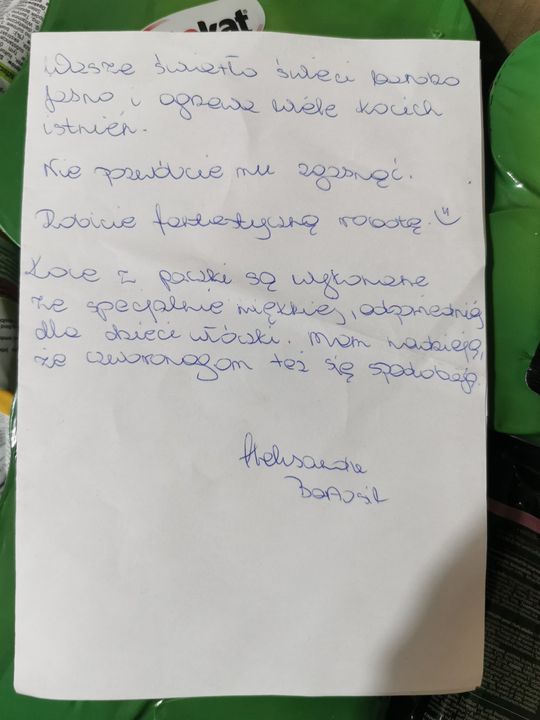 kat
Wasze światło świeci bardzo
jasno i ogrzewa wiele kocich
istnień.
Nie pozwólcie mu zgasnąć.
Robicie fantastyczną robotę.
Koce z paczki są wykonane
ze specjalnie miękkiej, odpowiedniej
dla dzieci włóczki. Mam nadzieję,
że czworonogom też się spodobają.
Aleksandra